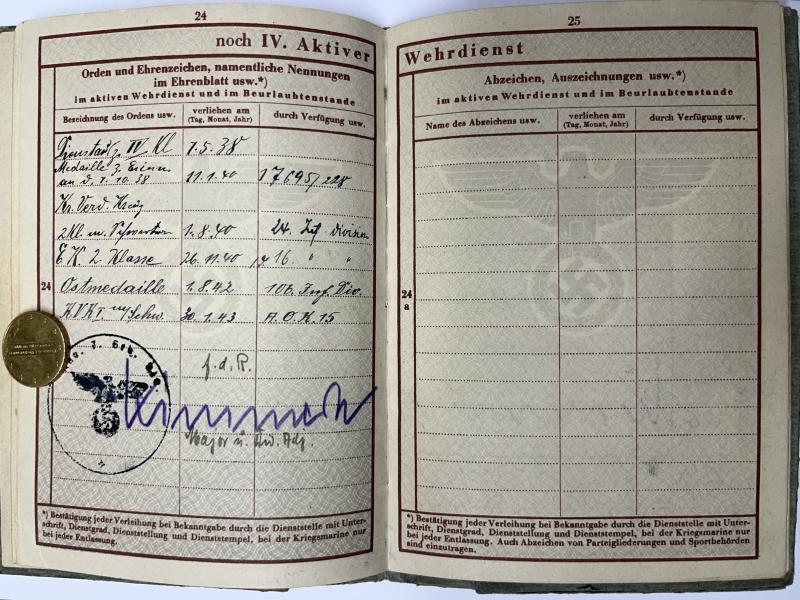 24
noch IV. Aktiver
Orden und Ehrenzeichen, namentliche Nennungen
im Ehrenblatt usw.*)
im aktiven Wehrdienst und im Beurlaubtenstande
Bezeichnung des Ordens usw.
verliehen am
(Tag, Monat, Jahr)
durch Verfügung usw.
IV. Kl 1.5.38
Medaille z.
an d. 1. 10. 38 11.1.40 17695/228
Kr. Verd. Kreuz
2 Kl. m. Schwertern 1.8.40 24. Inf. division
E.K. 2. Klasse 26.11.40 16. " "
24
Ostmedaille 1.8.42 Inf. Div.
KVK I. m/Schw. 30.1.43 A.O.K. 15
f.d.R.
Major u.
*) Bestätigung jeder Verleihung bei Bekanntgabe durch die Dienststelle mit Unter-
schrift, Dienstgrad, Dienststellung und Dienststempel, bei der Kriegsmarine nur
bei jeder Entlassung.
25
Wehrdienst
Abzeichen, Auszeichnungen usw.*)
im aktiven Wehrdienst und im Beurlaubtenstande
Name des Abzeichens usw.
verliehen am
(Tag, Monat, Jahr)
durch Verfügung usw.
24
a
*) Bestätigung jeder Verleihung bei Bekanntgabe durch die Dienststelle mit Unter-
schrift, Dienstgrad, Dienststellung und Dienststempel, bei der Kriegsmarine nur
bei jeder Entlassung. Auch Abzeichen von Parteigliederungen und Sportbehörden
sind einzutragen.